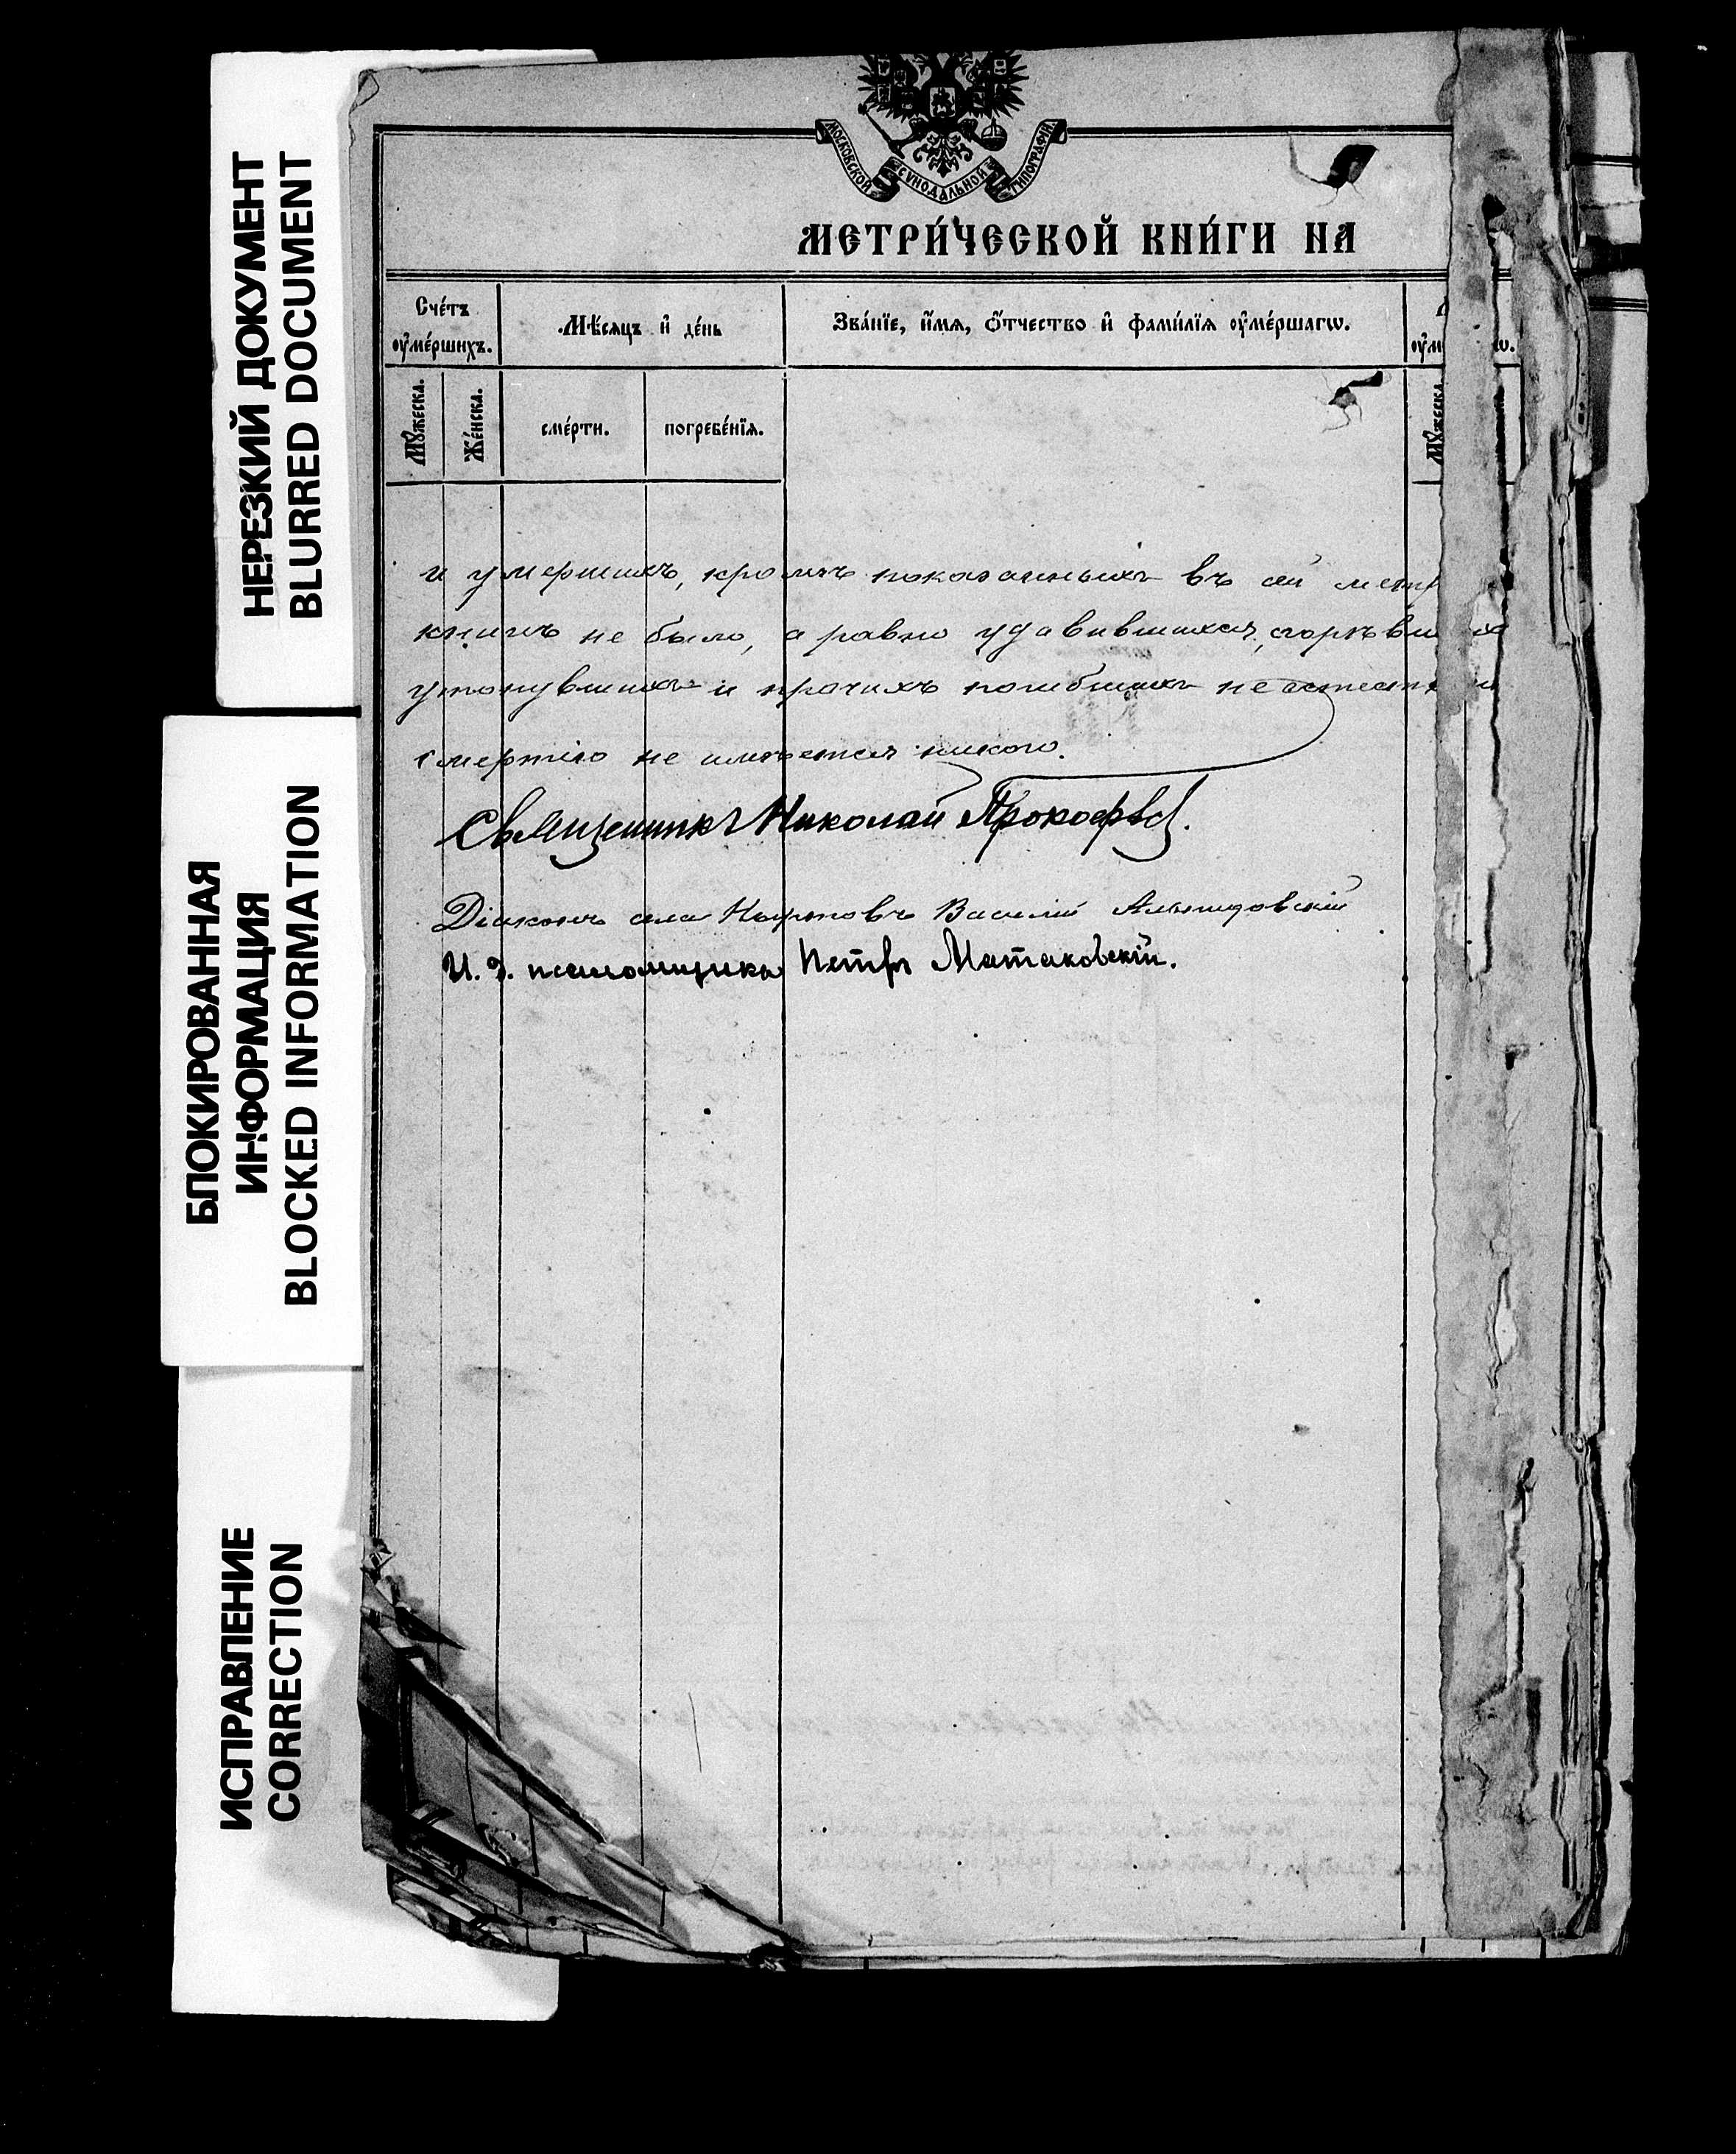 НЕРЕЗКИЙ ДОКУМЕНТ
BLURRED DOCUMENT
БЛОКИРОВАННАЯ
ИНФОРМАЦИЯ
BLOCKED INFORMATION
ИСПРАВЛЕНИЕ
CORRECTION
МОСКОВСКОЙ СѴНОДАЛЬНОЙ ТИПОГРАФІИ
МЕТРИ́ЧЕСКОЙ КНИ́ГИ НА
Сче́тъ
ᲂу҆ме́ршихъ.
Мѣ́сяцъ и҆ де́нь
Зва́нїе, и҆́мѧ, ѻ҆́тчество и҆ фами́лїѧ ᲂу҆ме́ршагѡ.
Мꙋ́жеска.
Же́нска.
сме́рти.
погребе́нїѧ.
Мꙋ́жеска
и умершихъ, кромѣ показанныхъ въ сей метр
книгѣ не было, а равно удавившихся, сгорѣвш
утонувшихъ и прочихъ погибшихъ неестеств
смертію не имѣется никого.
Священникъ Николай Прокофьев.
Діаконъ села Василій
И. д. псаломщика Петръ Матаковскій.